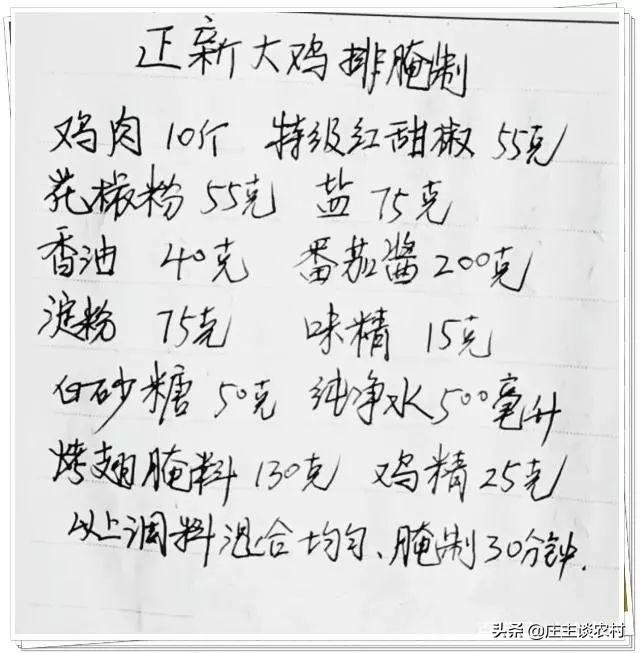 正新大鸡排腌制
鸡肉 10个 特级红甜椒 55克
花椒粉 55克 盐 75克
香油 40克 番茄酱 200克
淀粉 75克 味精 15克
白砂糖 50克 纯净水 500毫升
烤翅腌料 130克 鸡精 25克
以上调料混合均匀、腌制30分钟.
头条 @庄主谈农村